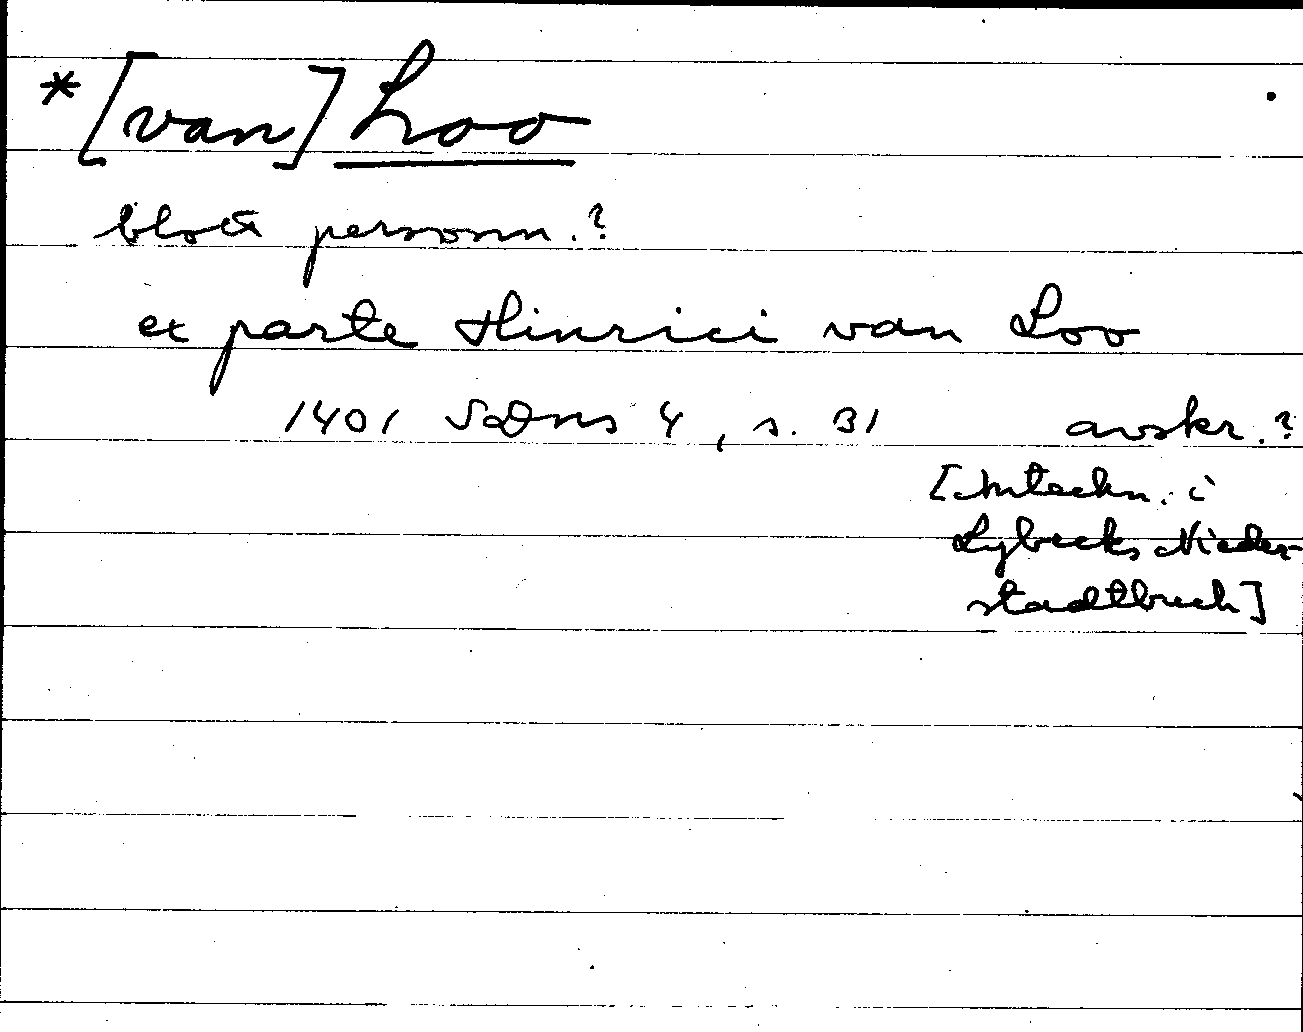 * [van] Loo
blott personn.?
ex parte Hinrici van Loo
1401 SDns 4, s. 31 avskr.?
[Anteckn. i
Lybecks Nieder-
stadtbuch]